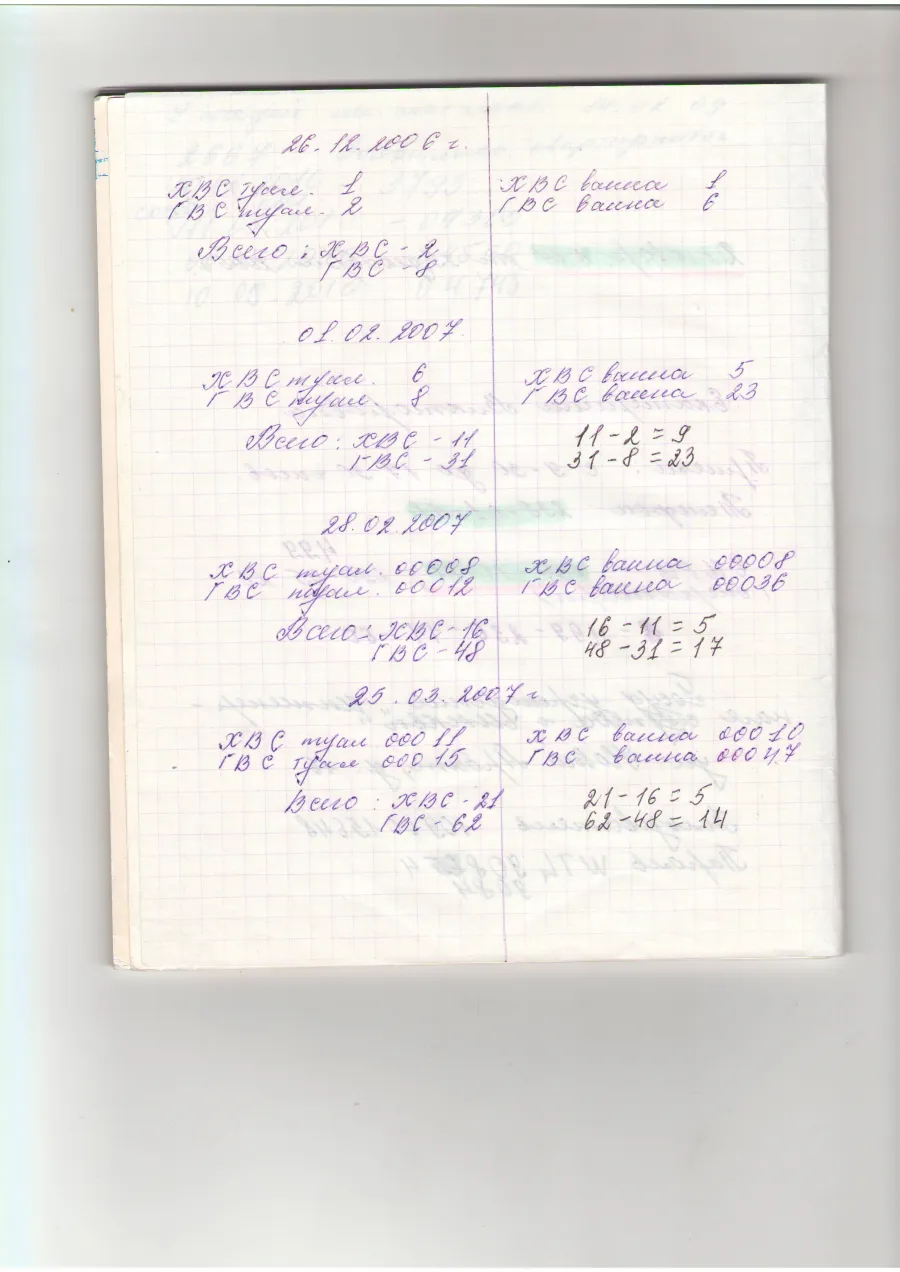 26.12.2006 г.
ХВС туал. 1 ХВС ванна 1
ГВС туал. 2 ГВС ванна 6
Всего: ХВС - 2
ГВС - 8
01.02.2007.
ХВС туал. 6 ХВС ванна 5
ГВС туал. 8 ГВС ванна 23
Всего: ХВС - 11 11 - 2 = 9
ГВС - 31 31 - 8 = 23
28.02.2007
ХВС туал. 00008 ХВС ванна 00008
ГВС туал. 00012 ГВС ванна 00036
Всего: ХВС - 16 16 - 11 = 5
ГВС - 48 48 - 31 = 17
25.03.2007 г.
ХВС туал 00011 ХВС ванна 00010
ГВС туал 00015 ГВС ванна 00047
Всего: ХВС - 21 21 - 16 = 5
ГВС - 62 62 - 48 = 14